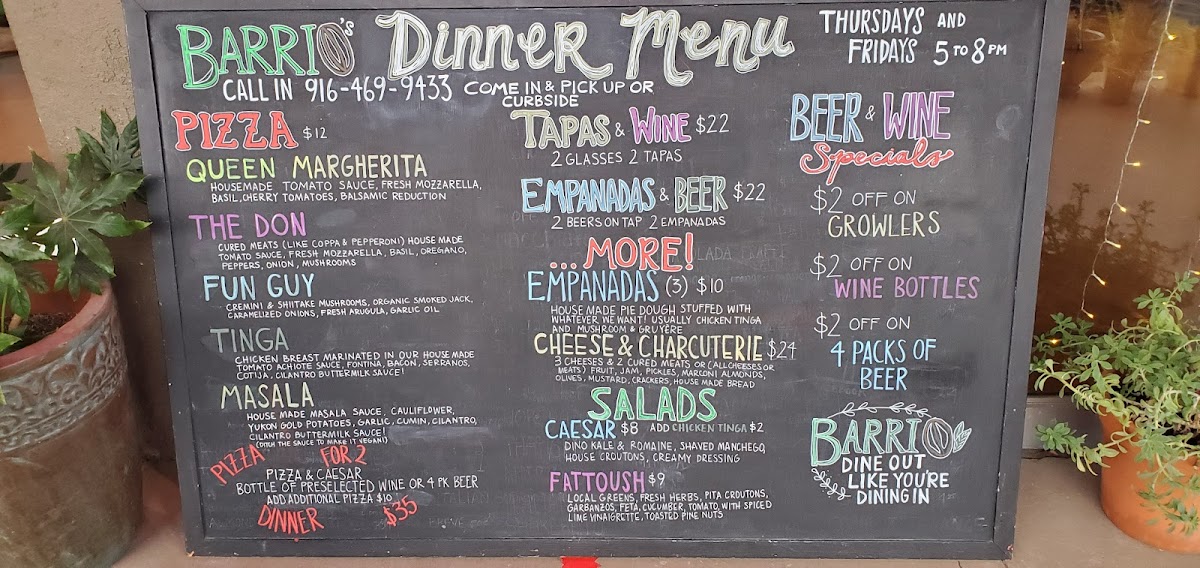 BARRIO'S Dinner Menu
THURSDAYS AND
FRIDAYS 5 TO 8 PM
CALL IN 916-469-9433 COME IN & PICK UP OR
CURBSIDE
PIZZA $12
QUEEN MARGHERITA
HOUSEMADE TOMATO SAUCE, FRESH MOZZARELLA,
BASIL, CHERRY TOMATOES, BALSAMIC REDUCTION
THE DON
CURED MEATS (LIKE COPPA & PEPPERONI) HOUSE MADE
TOMATO SAUCE, FRESH MOZZARELLA, BASIL, OREGANO,
PEPPERS, ONION, MUSHROOMS
FUN GUY
CREMINI & SHIITAKE MUSHROOMS, ORGANIC SMOKED JACK,
CARAMELIZED ONIONS, FRESH ARUGULA, GARLIC OIL
TINGA
CHICKEN BREAST MARINATED IN OUR HOUSE MADE
TOMATO ACHIOTE SAUCE, FONTINA, BACON, SERRANOS,
COTIJA, CILANTRO BUTTERMILK SAUCE!
MASALA
HOUSE MADE MASALA SAUCE, CAULIFLOWER,
YUKON GOLD POTATOES, GARLIC, CUMIN, CILANTRO,
CILANTRO BUTTERMILK SAUCE!
(DITCH THE SAUCE TO MAKE IT VEGAN!)
PIZZA FOR 2
PIZZA & CAESAR
BOTTLE OF PRESELECTED WINE OR 4 PK BEER
ADD ADDITIONAL PIZZA $10
DINNER $35
TAPAS & WINE $22
2 GLASSES 2 TAPAS
EMPANADAS & BEER $22
2 BEERS ON TAP 2 EMPANADAS
...MORE!
EMPANADAS (3) $10
HOUSE MADE PIE DOUGH STUFFED WITH
WHATEVER WE WANT! USUALLY CHICKEN TINGA
AND MUSHROOM & GRUYÈRE
CHEESE & CHARCUTERIE $24
3 CHEESES & 2 CURED MEATS OR (ALL CHEESES OR
MEATS) FRUIT, JAM, PICKLES, MARCONI ALMONDS,
OLIVES, MUSTARD, CRACKERS, HOUSE MADE BREAD
SALADS
CAESAR $8 ADD CHICKEN TINGA $2
DINO KALE & ROMAINE, SHAVED MANCHEGO,
HOUSE CROUTONS, CREAMY DRESSING
FATTOUSH $9
LOCAL GREENS, FRESH HERBS, PITA CROUTONS,
GARBANZOS, FETA, CUCUMBER, TOMATO, WITH SPICED
LIME VINAIGRETTE, TOASTED PINE NUTS
BEER & WINE
Specials
$2 OFF ON
GROWLERS
$2 OFF ON
WINE BOTTLES
$2 OFF ON
4 PACKS OF
BEER
BARRIO
DINE OUT
LIKE YOU'RE
DINING IN